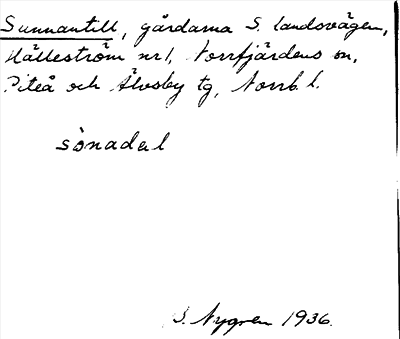 Sunnantill, gårdarna S. landsvägen,
Hälleström nr 1, Norrfjärdens sn,
Piteå och Älvsby tg, Norrb. l.
sȯnadal
S. Nygren 1936.